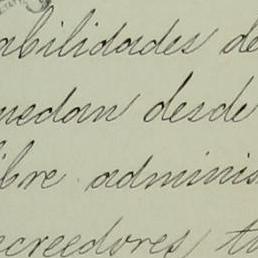 abilidades de
uedan desde
ibre adminis
creedores, tu